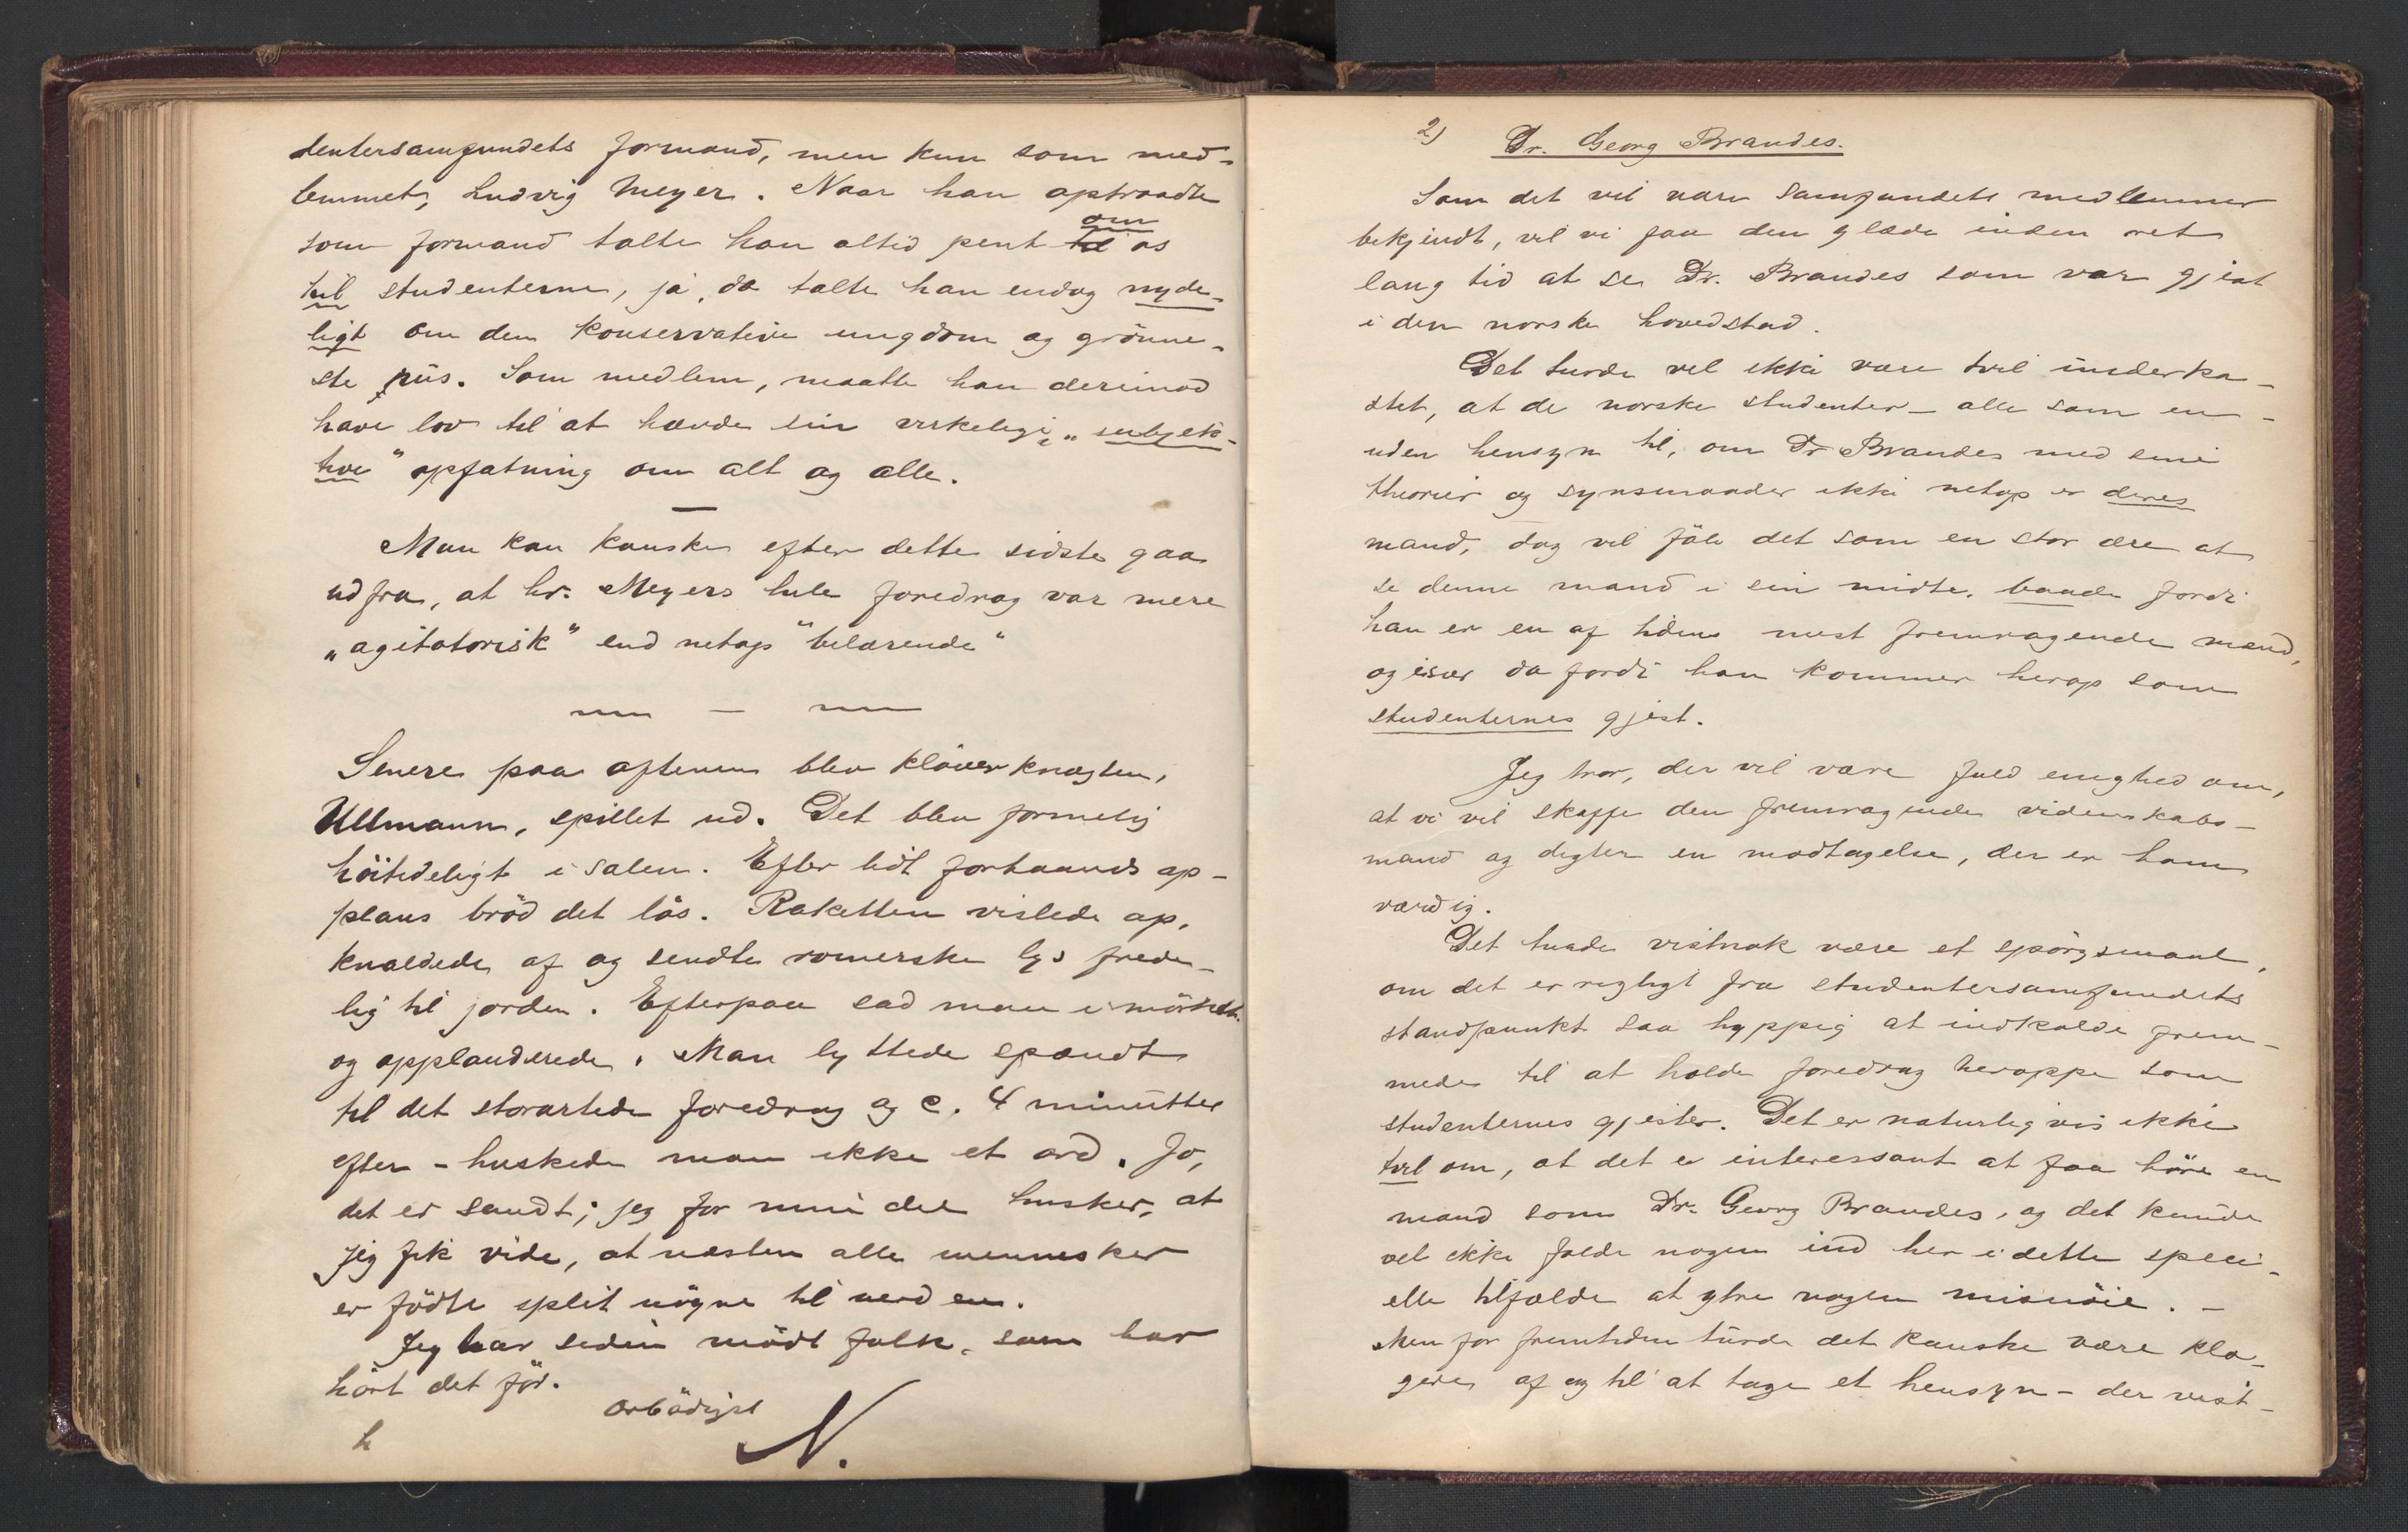 dentersamfundets formand, men kun som med-
lemmet, Ludvig Meyer. Naar han optraadte
som formand talte han altid pent til om os
til studenterne, ja, da talte han endog nyde-
ligt om den konservative ungdom og grönne-
ste riis. Som medlem, maatte han derimod
have lov til at hævde sin virkelige, "subjek-
tive" opfatning om alt og alle.
—
Man kan kanske efter dette sidste gaa
ud fra, at hr. Meyers hele foredrag var mere
"agitatorisk" end netop "belærende"
—
Senere paa aftenen blev klöver knægten,
Ullmann, spillet ud. Det blev formelig
höitideligt i salen. Efter lidt forhaands ap-
plaus bröd det lös. Raketten vislede op,
knaldede af og sendte romerske lys frede-
lig til jorden. Efterpaa sad man i mörket
og applauderede. Man lyttede spændt
til det storartede foredrag og c. 4 minutter
efter - huskede man ikke et ord. Jo,
det er sandt; jeg for min del husker, at
jeg fik vide, at næsten alle mennesker
er födte split nögne til verden.
Jeg har siden mödt folk, som har
hört det för.
ærbödigst
N.
h
2) Dr. Georg Brandes.
Som det vil være samfundets medlemmer
bekjendt, vil vi faa den glæde inden ret
lang tid at se Dr. Brandes som vor gjest
i den norske hovedstad.
Det turde vel ikke være tvil underka-
stet, at de norske studenter - alle som en -
uden hensyn til, om Dr Brandes med sine
theorier og synsmaader ikke netop er deres
mand, dog vil föle det som en stor ære at
se denne mand i sin midte, baade fordi
han er en af tidens mest fremragende mænd,
og især da fordi han kommer herop som
studenternes gjest.
Jeg tror, der vil være fuld enighed om,
at vi vil skaffe den fremragende videnskabs-
mand og digter en modtagelse, der er ham
værdig.
Det turde vistnok være et spörgsmaal,
om det er rigtigt fra studentersamfundets
standpunkt saa hyppig at indkalde frem-
mede til at holde foredrag heroppe som
studenternes gjester. Det er naturligvis ikke
tvil om, at det er interessant at faa höre en
mand som Dr. Georg Brandes, og det kunde
vel ikke falde nogen ind her i dette speci-
elle tilfælde at ytre nogen misnöie. -
Men for fremtiden turde det kanske være klo-
gere af og til at tage et hensyn - der vist-